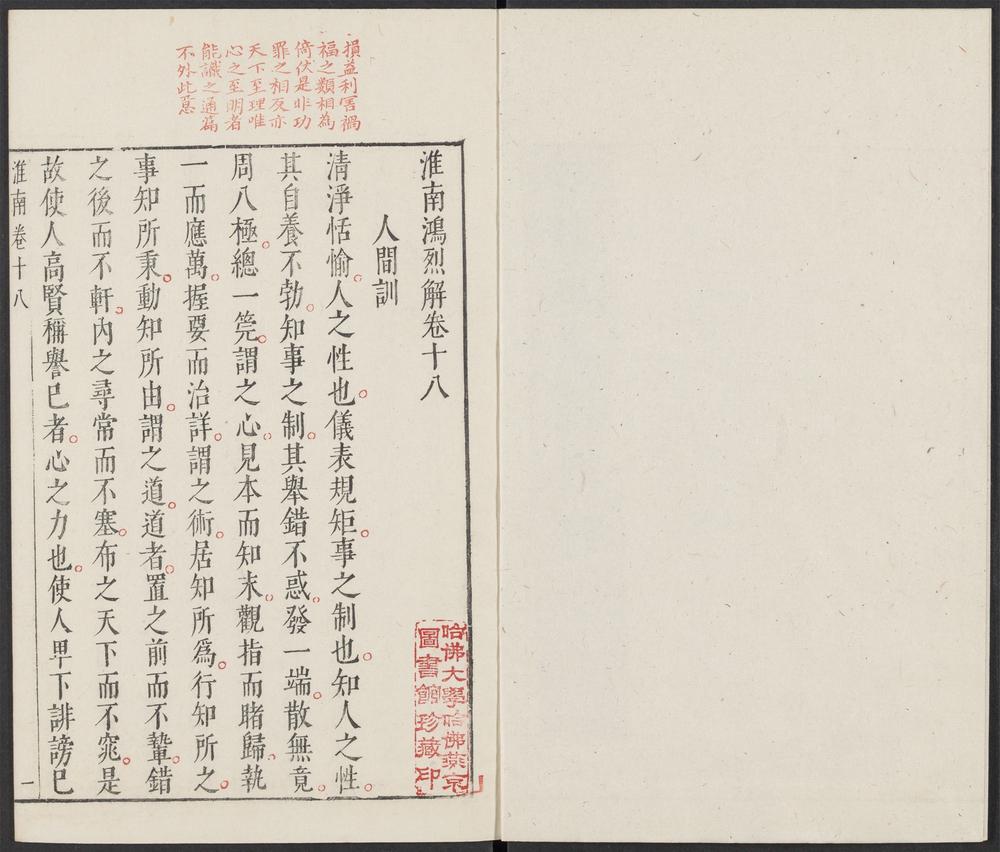 損益利害禍
福之類相為
倚伏是非功
罪之相反亦
天下至理唯
心之至明者
能識之通篇
不外此意
淮南鴻烈解卷十八
人間訓
清淨恬愉人之性也儀表規矩事之制也知人之性
其自養不勃知事之制其舉錯不惑發一端散無竟
周八極總一筦謂之心見本而知末觀指而睹歸執
一而應萬握要而治詳謂之術居知所爲行知所之
事知所秉動知所由謂之道道者置之前而不䡖錯
之後而不軒內之尋常而不塞布之天下而不窕是
故使人高賢稱譽已者心之力也使人卑下誹謗已
淮南卷十八
一
哈佛大學哈佛燕京
圖書館珍藏印